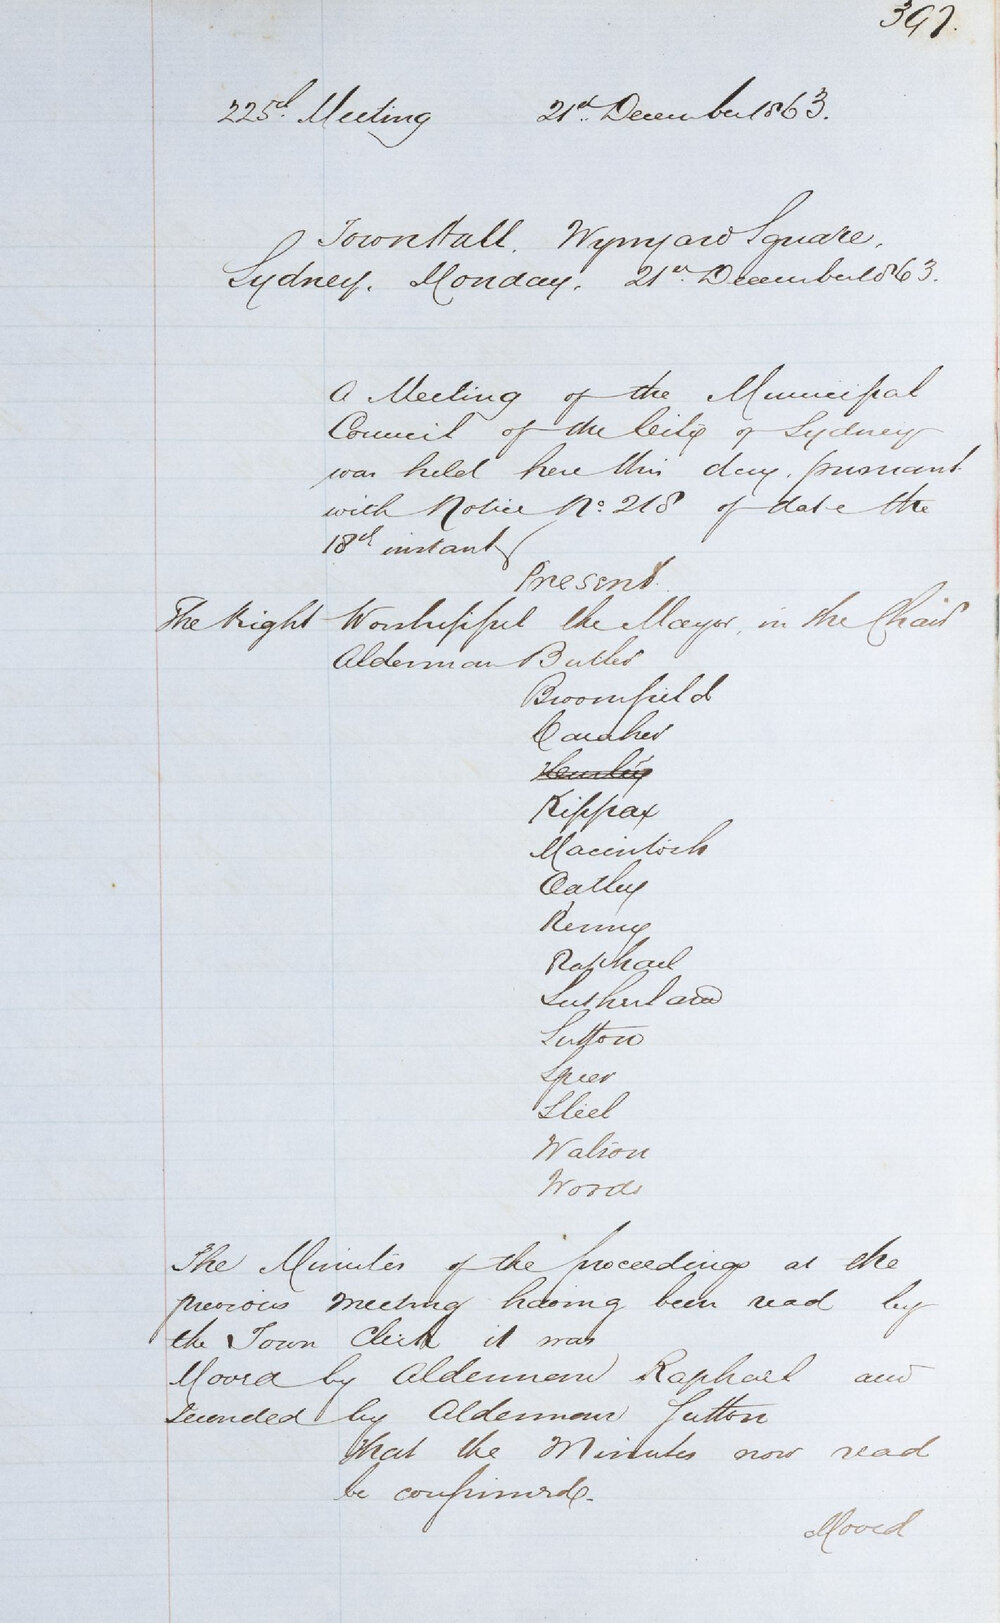 397.
225th. Meeting 21st. December 1863.
Town Hall, Wynyard Square,
Sydney, Monday, 21st December 1863.
A Meeting of the Municipal
Council of the City of Sydney
was held here this day, pursuant
with Notice No. 218 of date the
18th instant
Present
The Right Worshipful the Mayor, in the Chair
Alderman Butler
Broomfield
Caraher
Kippax
Macintosh
Oatley
Renny
Raphael
Sutherland
Sutton
Speer
Steel
Watson
Woods
The Minutes of the proceedings at the
previous meeting having been read by
the Town Clerk it was
Moved by Alderman Raphael and
Seconded by Alderman Sutton
That the Minutes now read
be confirmed.
Moved